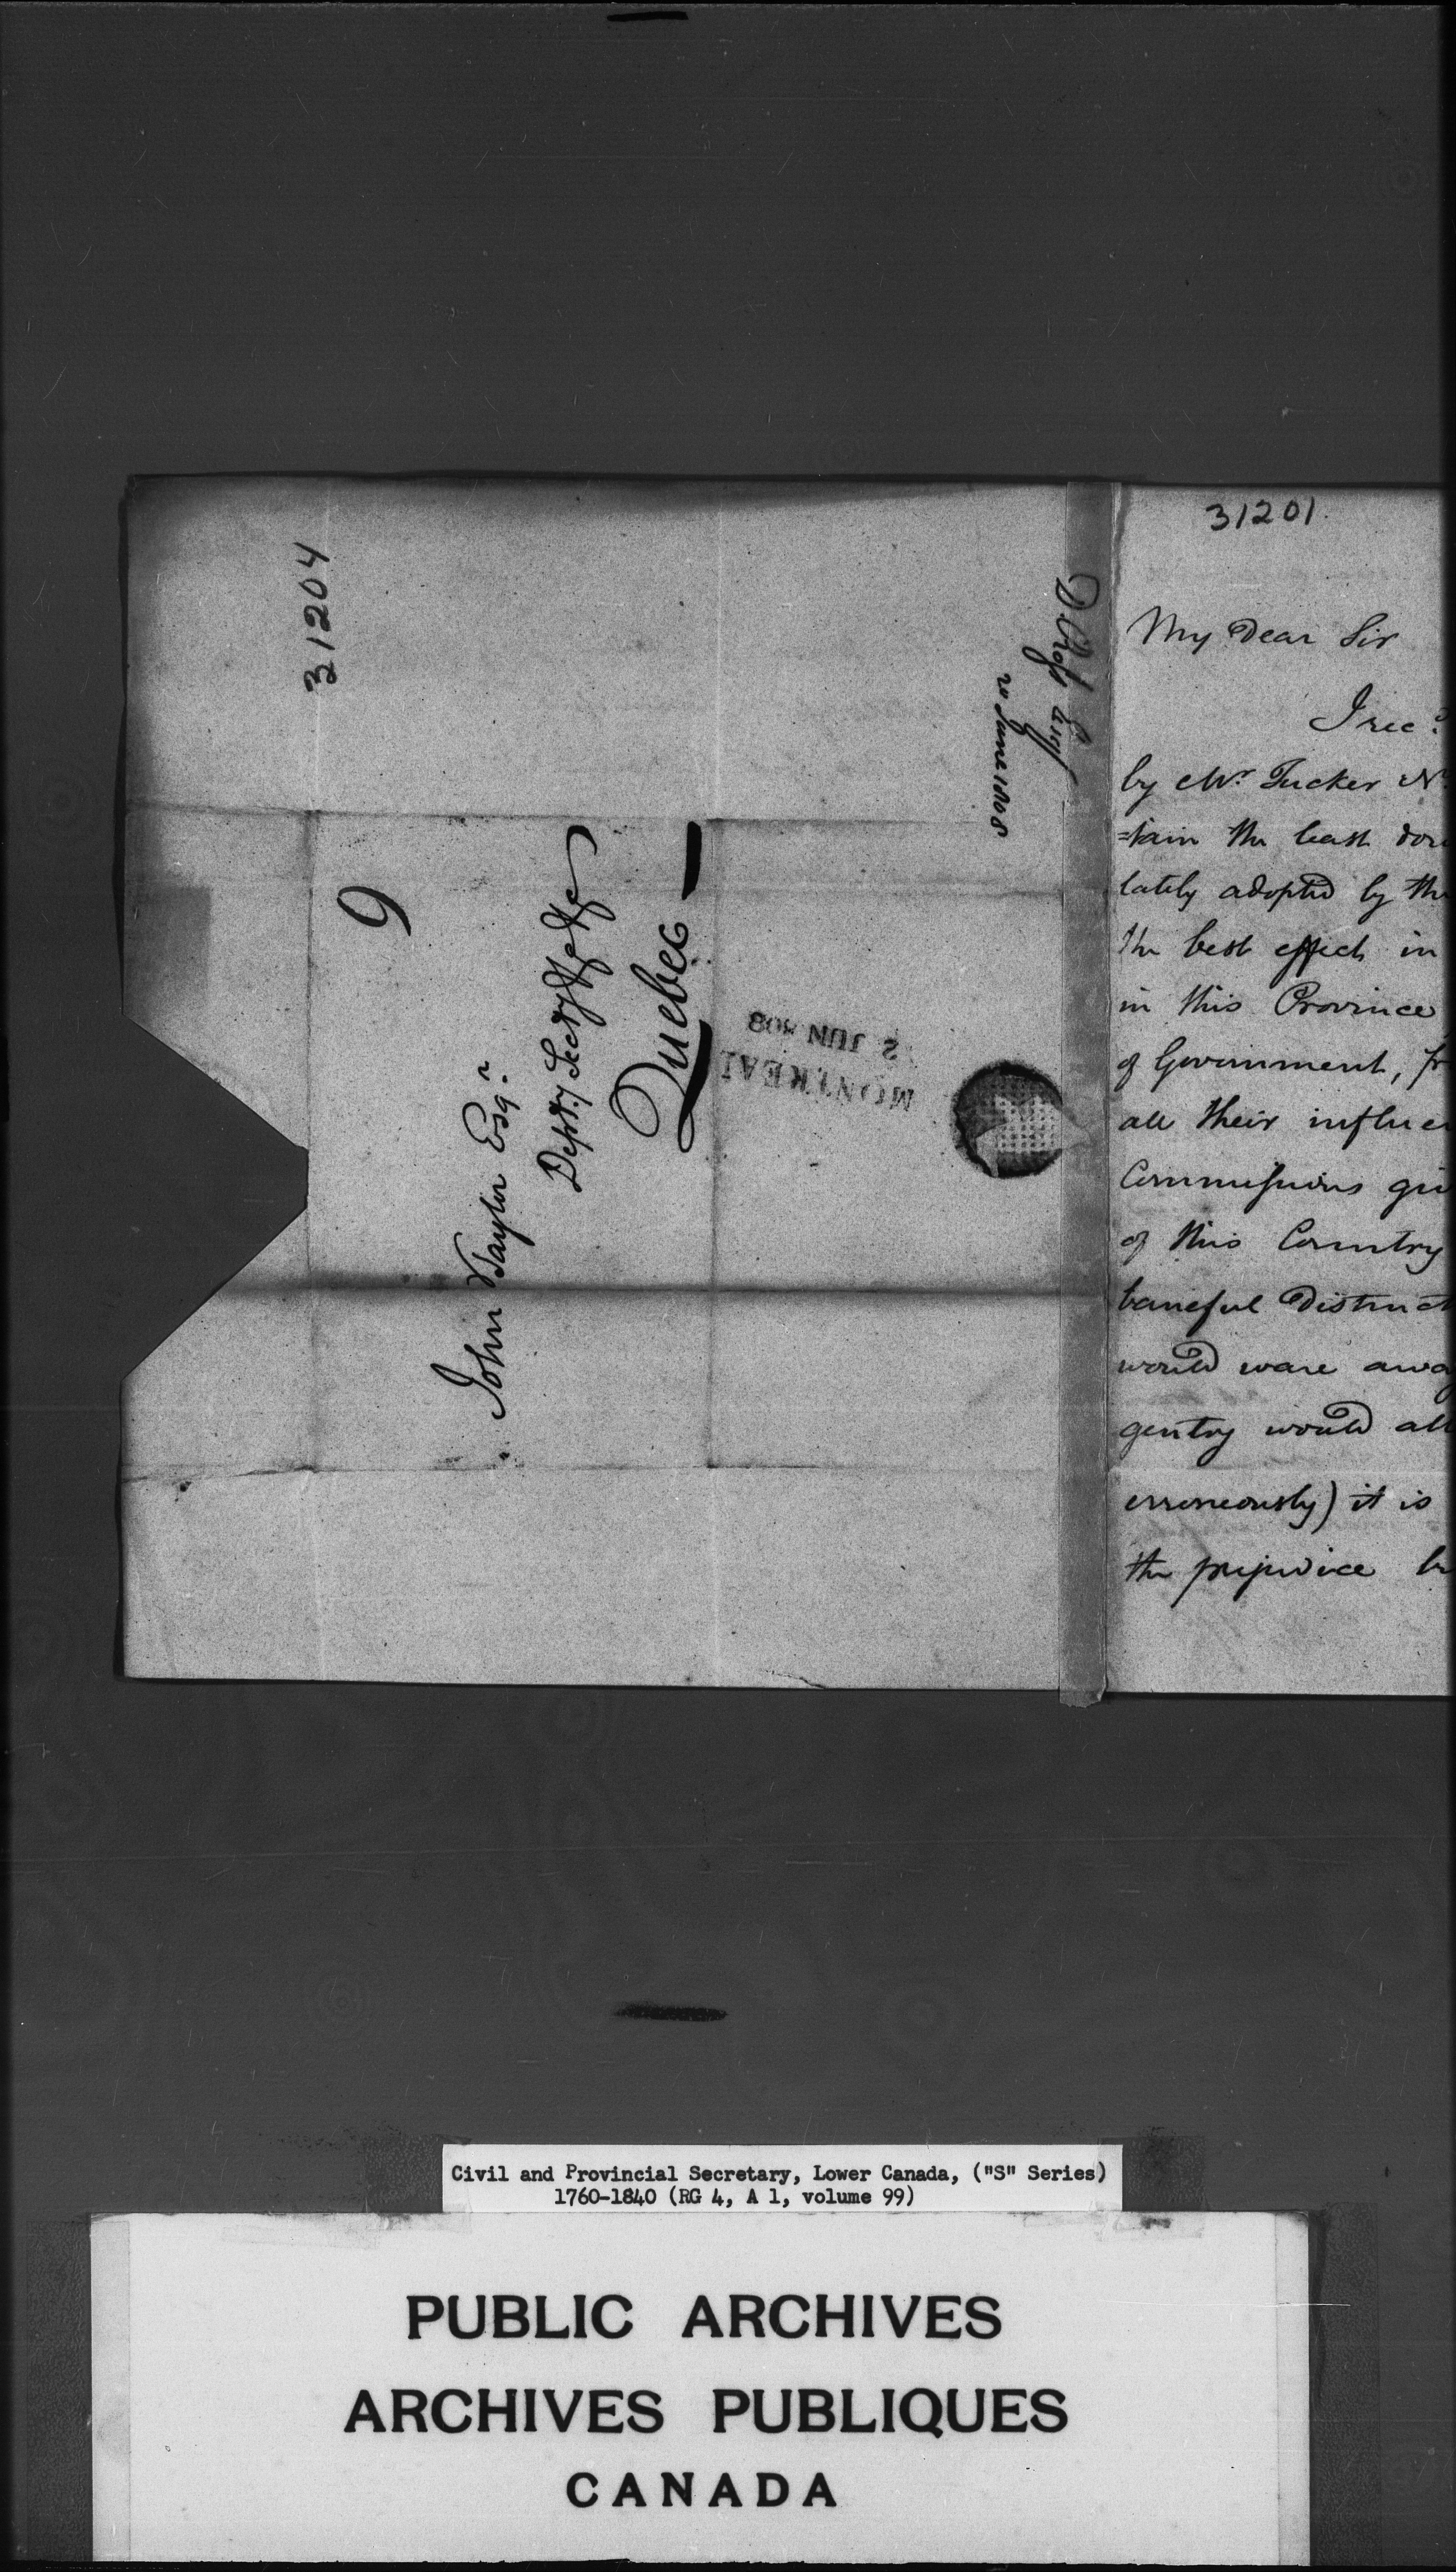 31204
9
John Taylor Esqr.
Depty. Secry &c &c &c
Quebec
MONTREAL
2 JUN 808
2d June 1808
31201
My Dear Sir
I recd.
by Mr. Tucker
=tain the least
lately adopted by the
the best effect in
in this Province
of Government,
all their
Commissions
of this Country
baneful
would ware
gentry would
erroneously) it is
the prejudice
Civil and Provincial Secretary, Lower Canada, ("S" Series)
1760-1840 (RG 4, A 1, volume 99)
PUBLIC ARCHIVES
ARCHIVES PUBLIQUES
CANADA